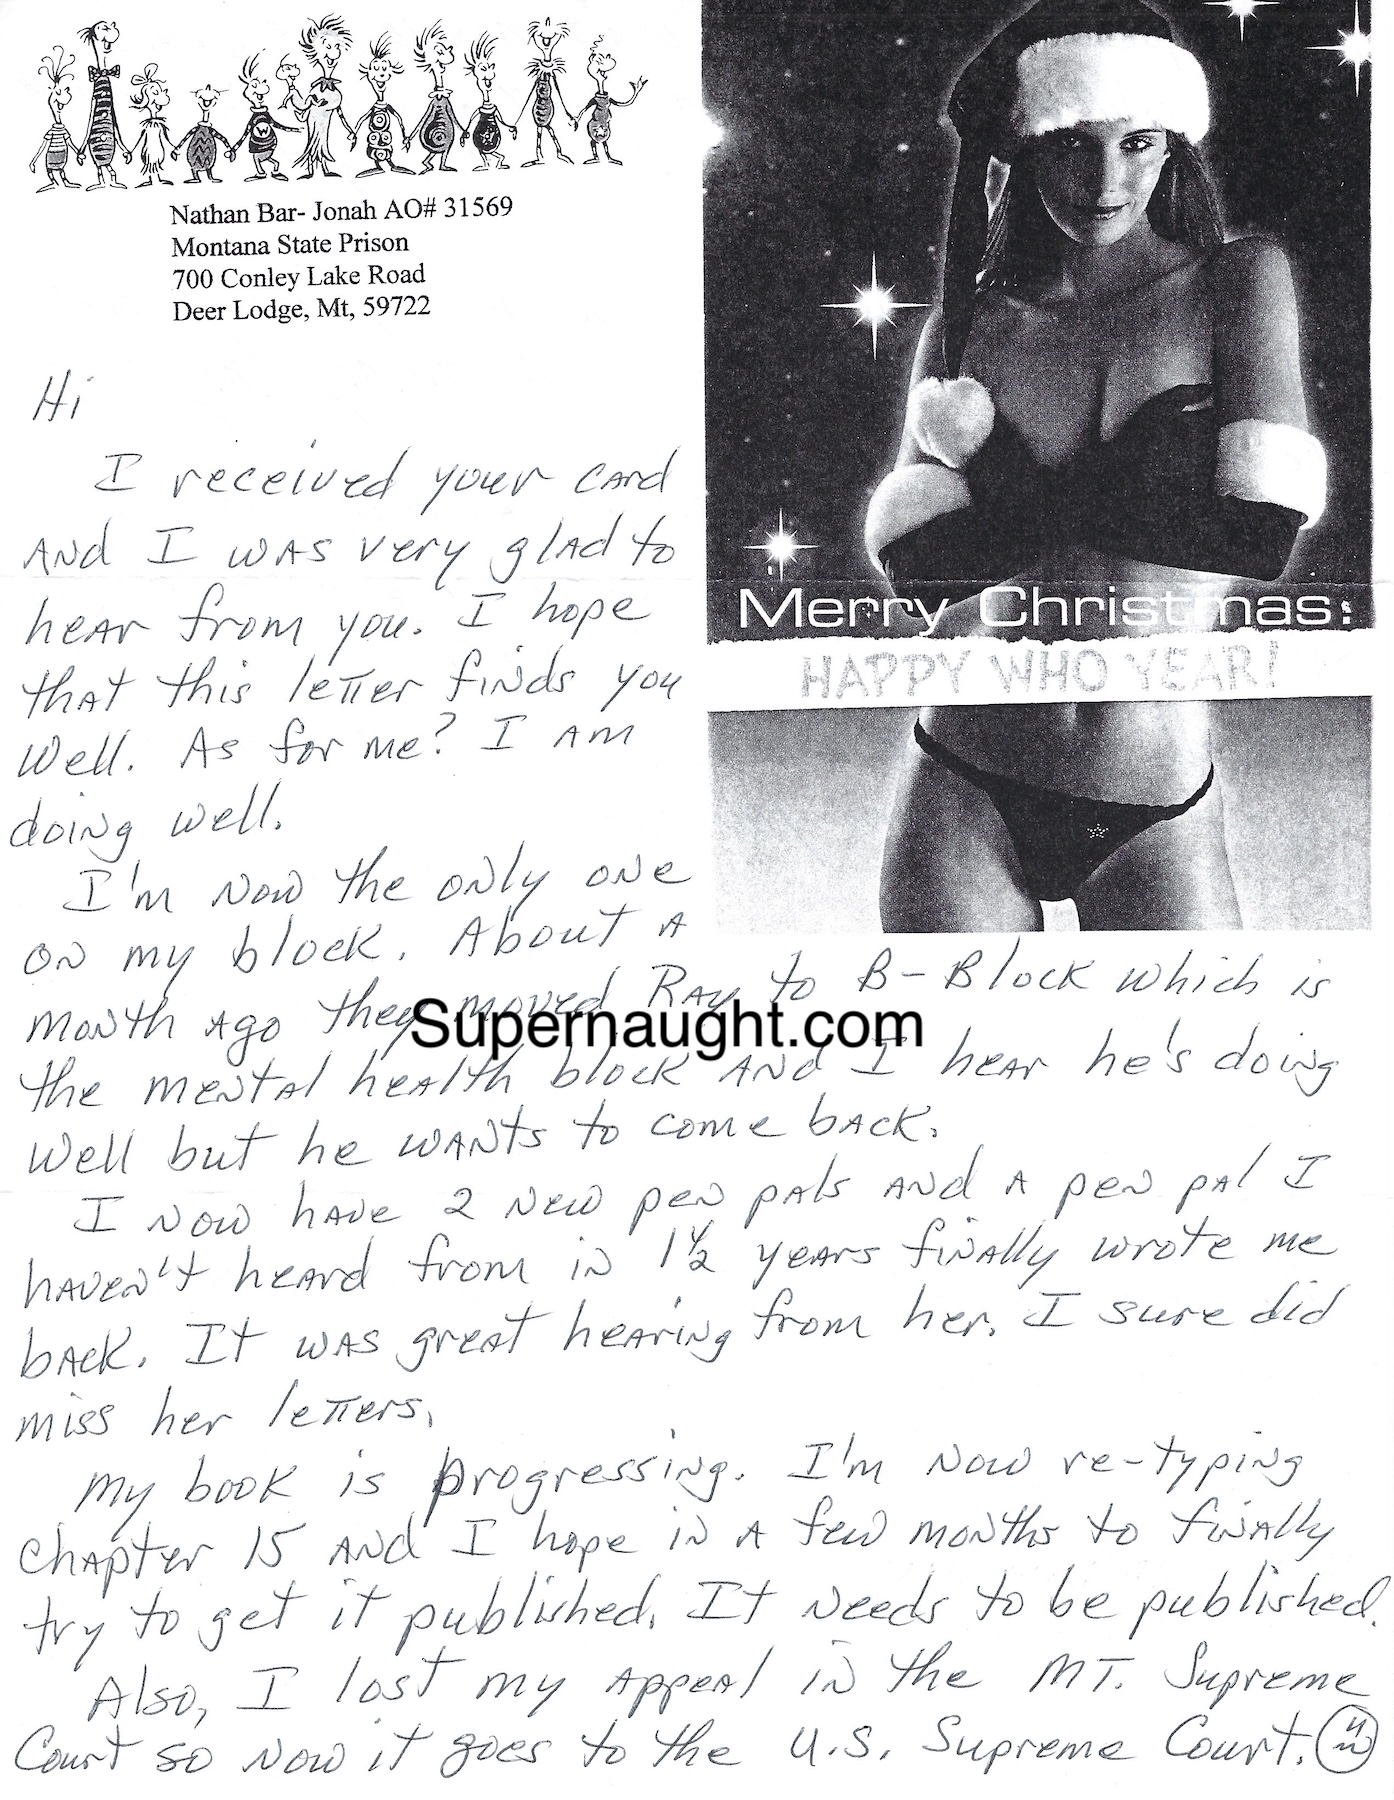 Nathan Bar- Jonah AO# 31569
Montana State Prison
700 Conley Lake Road
Deer Lodge, Mt, 59722
Merry Christmas:
HAPPY WHO YEAR!
Hi
I received your card
And I was very glad to
hear from you. I hope
that this letter finds you
well. As for me? I am
doing well.
I'm now the only one
on my block. About a
month ago they moved Ray to B-Block which is
Supernaught.com
the mental health block and I hear he's doing
well but he wants to come back.
I now have 2 new pen pals and a pen pal I
haven't heard from in 1 1/2 years finally wrote me
back. It was great hearing from her. I sure did
miss her letters.
My book is progressing. I'm now re-typing
chapter 15 and I hope in a few months to finally
try to get it published. It needs to be published.
Also, I lost my appeal in the MT. Supreme
Court so now it goes to the U.S. Supreme Court.